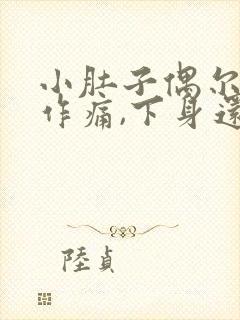 小肚子偶尔
作痛,下身还
陸貞